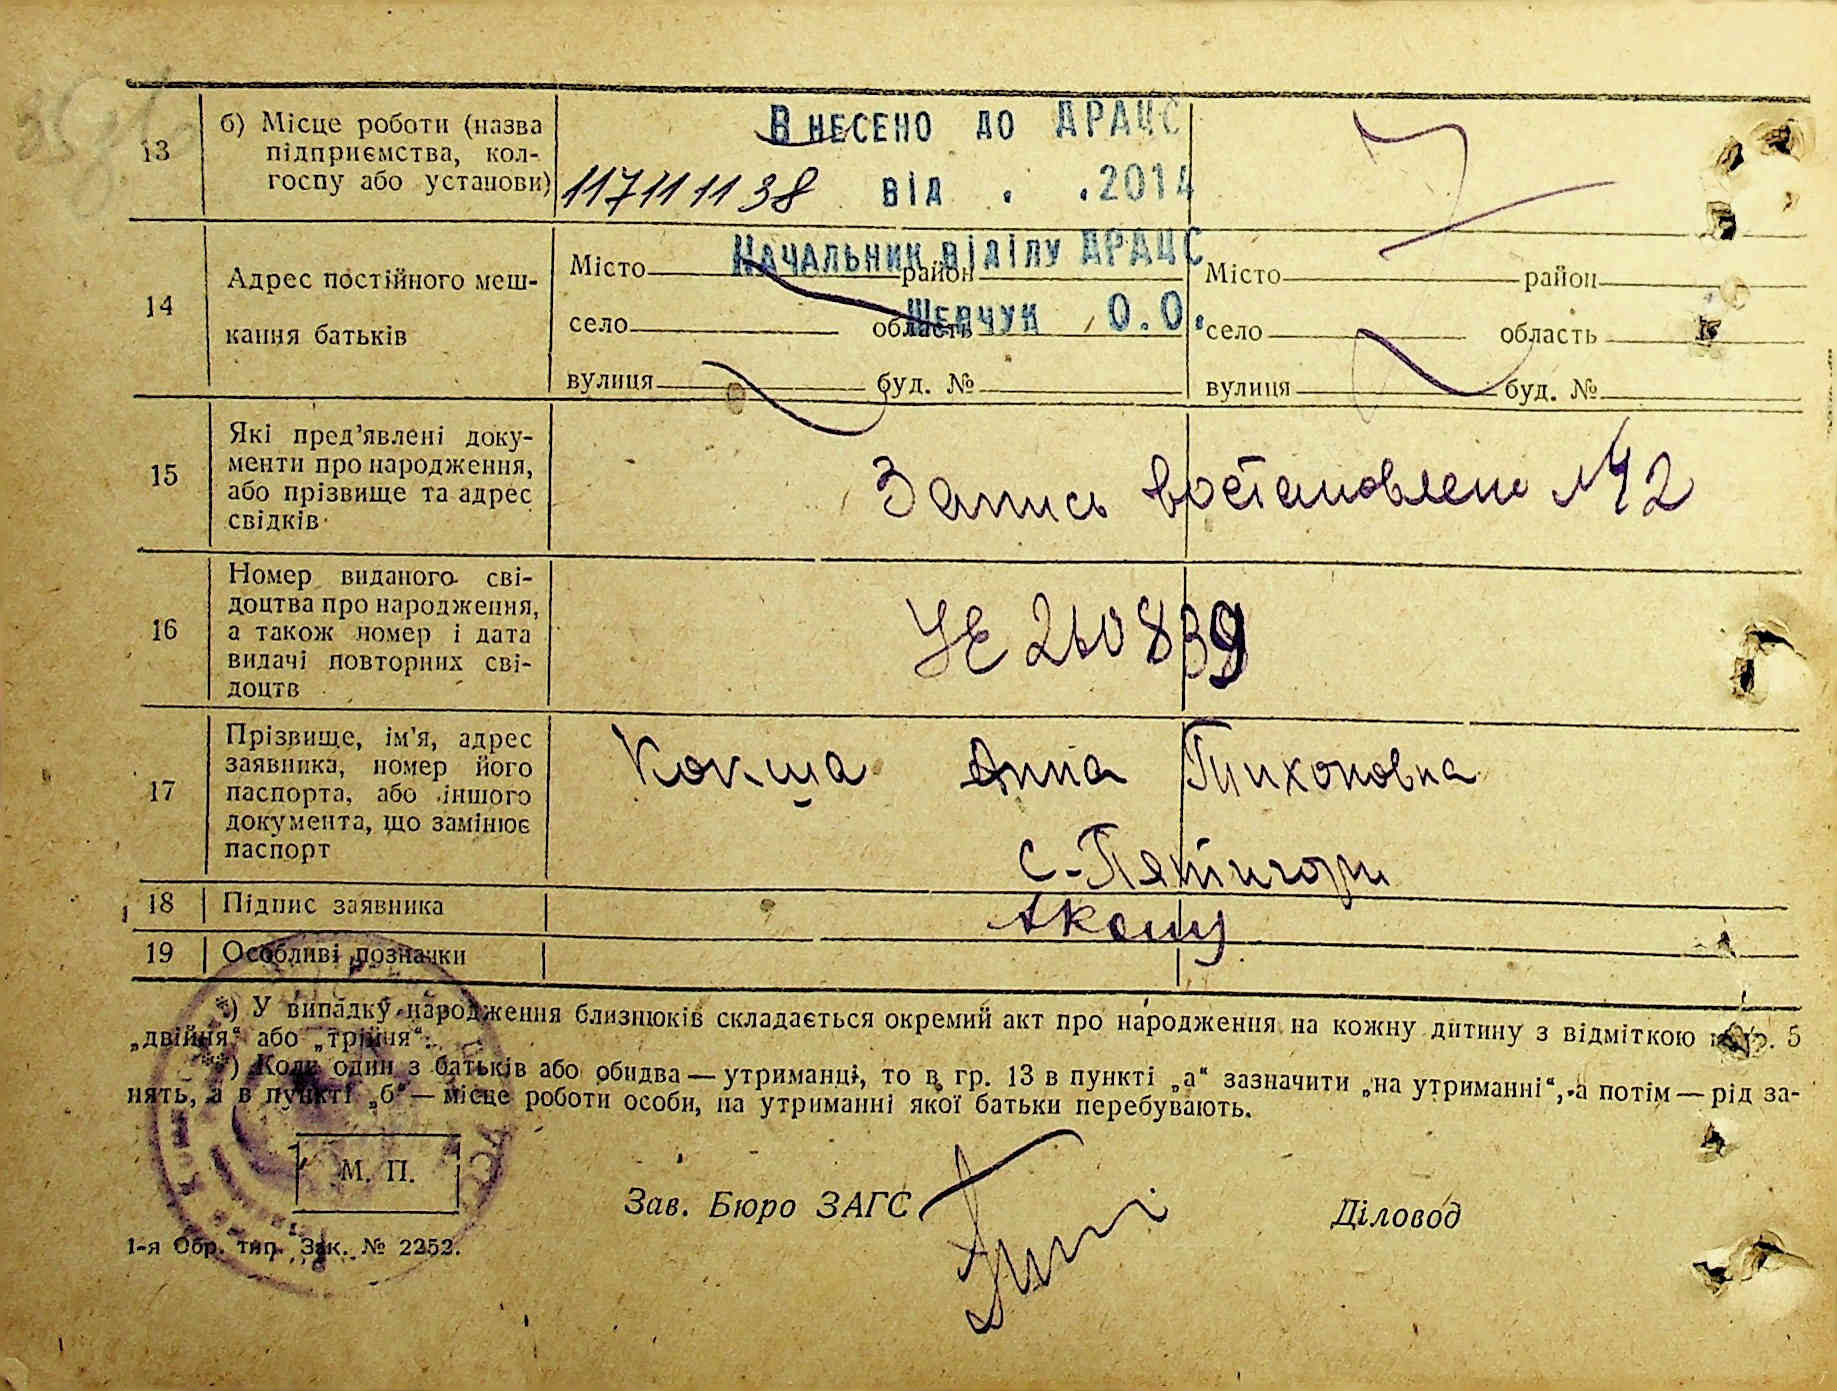 13
б) Місце роботи (назва
підприємства, кол-
госпу або установи)
Внесено до ДРАЦС
117111138 від . .2014
Начальник відділу ДРАЦС
Шевчук О.О.
14
Адрес постійного меш-
кання батьків
Місто район
село область
вулиця буд. №
Місто район
село область
вулиця буд. №
15
Які пред’явлені доку-
менти про народження,
або прізвище та адрес
свідків
Запись востановлена №42
16
Номер виданого сві-
доцтва про народження,
а також номер і дата
видачі повторних сві-
доцтв
УЕ 260839
17
Прізвище, ім’я, адрес
заявника, номер його
паспорта, або іншого
документа, що замінює
паспорт
Анна Тихоновна
с-Пятигори
18 Підпис заявника
19 Особливі позначки
*) У випадку народження близнюків складається окремий акт про народження на кожну дитину з відміткою 5
„двійня“ або „трійня“.
**) Коли один з батьків або обидва — утриманці, то в гр. 13 в пункті „а“ зазначити „на утриманні“, а потім — рід за-
нять, а в пункті „б“ — місце роботи особи, на утриманні якої батьки перебувають.
М. П.
Зав. Бюро ЗАГС
Діловод
1-я Обр. тип. Зак. № 2252.